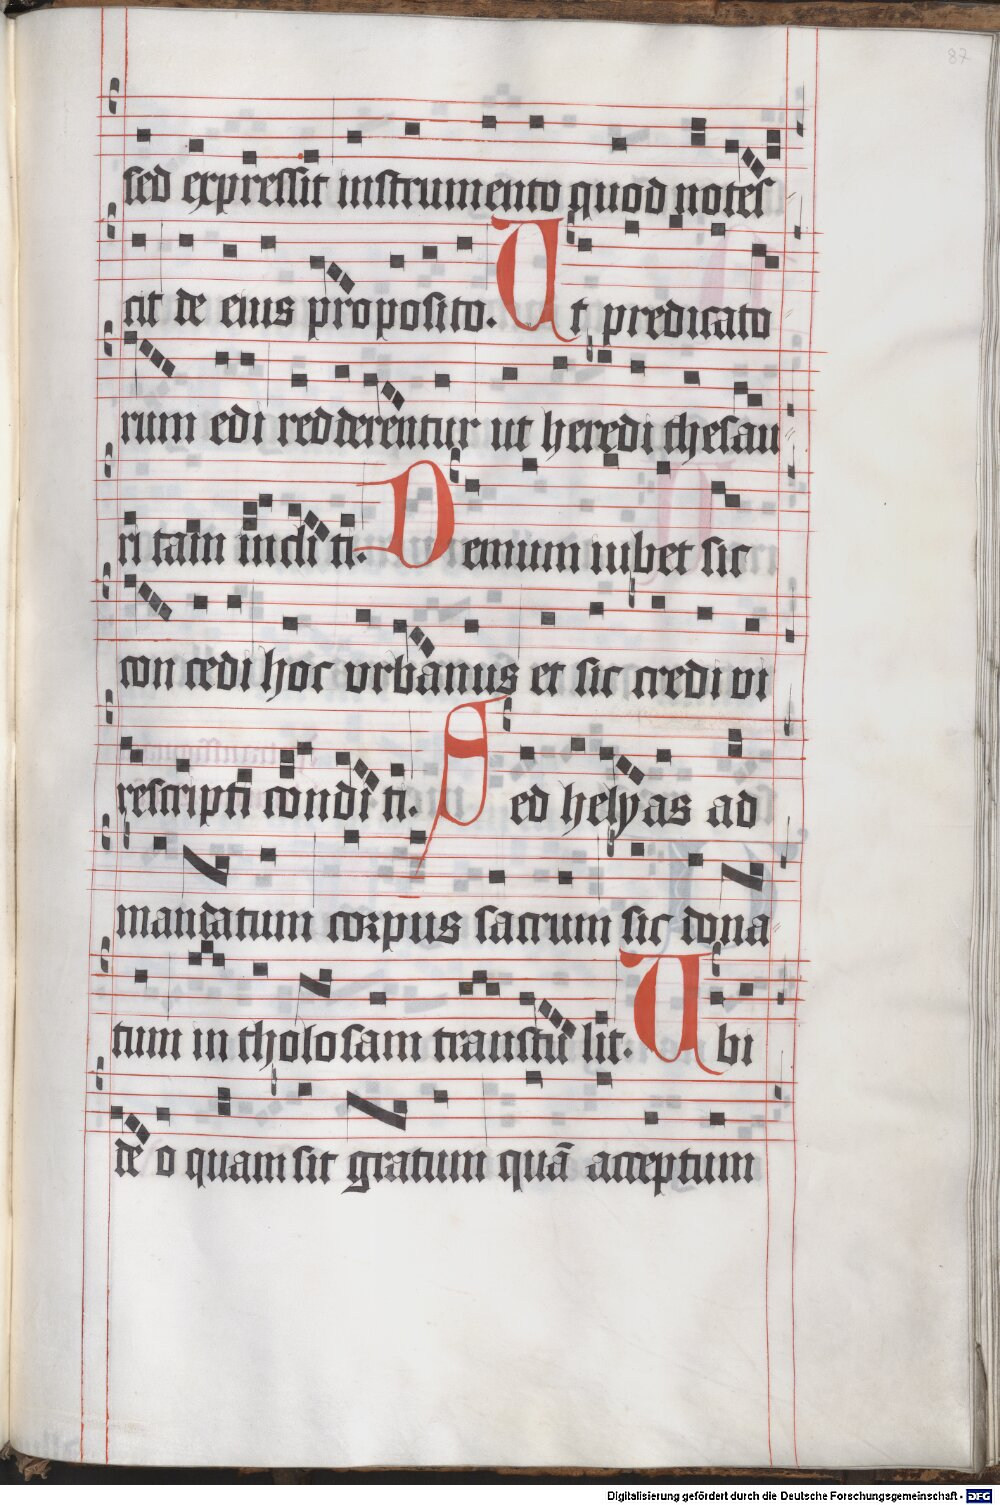 87
sed expressit instrumento quod notes
cit de eius proposito. Ut predicato
rum edi redderentur ut heredi thesau
ri tam incliti. Demum iubet sic
concedi hoc vrbanus et sic credi vi
rescripti conditi. Sed helyas ad
mandatum corpus sacrum sic dona
tum in tholosam transtulit. Ubi
de o quam sit gratum quā acceptum
Digitalisierung gefördert durch die Deutsche Forschungsgemeinschaft - DFG